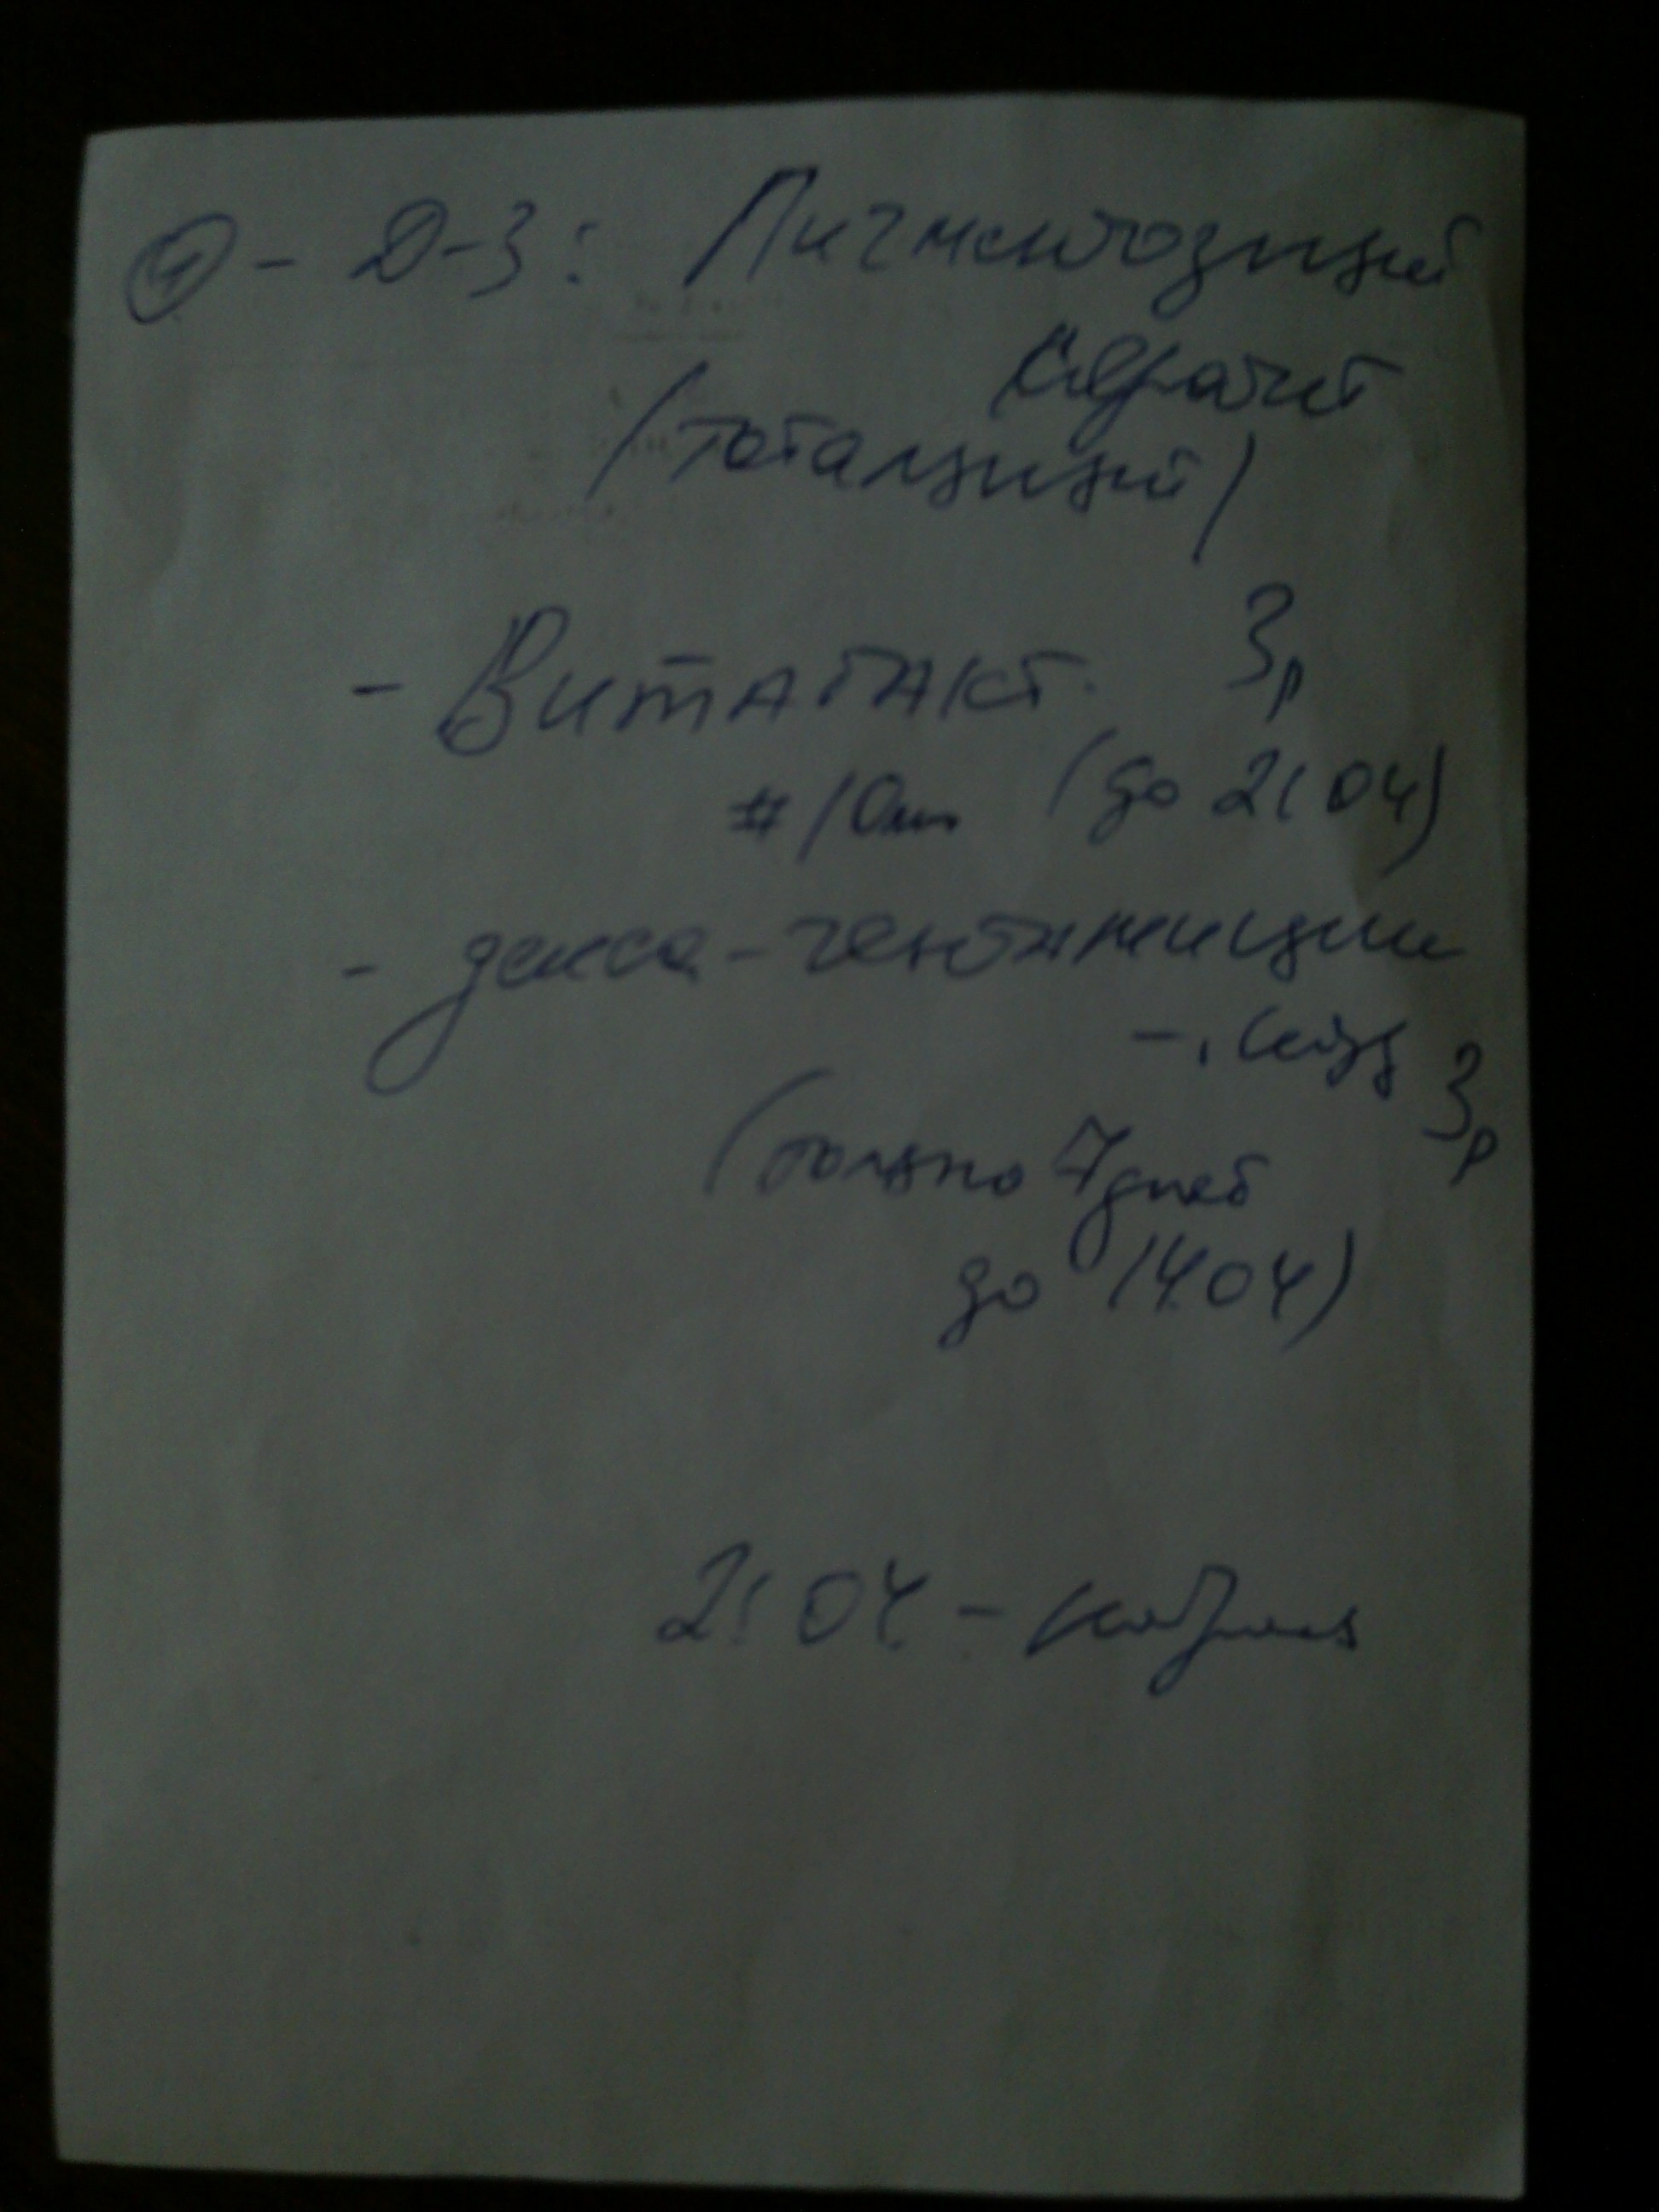 - Д-З: Пигментозный
кератит
(тотальный)
- Витабакт. 3р
#10 (до 21 04)
- декса-гентамицин
- 3р
(только 7 дней
до 14.04)
21.04 -